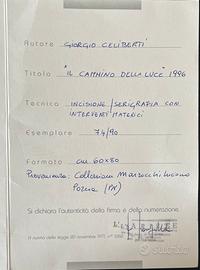 Autore GIORGIO CELIBERTI
Titolo "IL CAMMINO DELLA LUCE" 1996
Tecnica INCISIONE / SERIGRAFIA CON
INTERVENTI MATERICI
Esemplare 74/90
Formato cm 60x80
Provenienza: Collezione Marzocchi Luciano
Si dichiara l'autenticità della firma e della numerazione.
subito